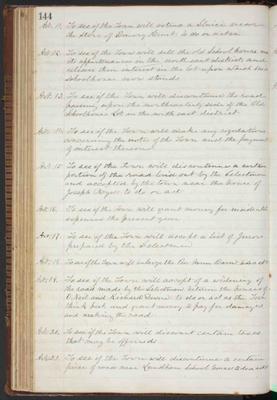 144
Art. 11. To see if the Town will
the store of to do or act on.
Art. 12. To see if the Town will sell the Old School house and
its appurtenances in the north east district and
allow their interest in the lot upon which said
schoolhouse now stands.
Art. 13. To see if the Town will discontinue the road
passing upon the northeasterly side of the Old
Schoolhouse lot in the north east district.
Art. 14. To see if the Town will make any regulations
concerning the notes of the Town and the payment
of interest thereon.
Art. 15. To see if the Town will discontinue a certain
portion of the road laid out by the Selectmen
and accepted by the town near the house of
Joseph to do or act.
Art. 16. To see if the Town will grant money for incidental
expenses the present year.
Art. 17. To see if the Town will accept a List of Jurors
prepared by the Selectmen.
Art. 18. To see if the Town will enlarge the Poor Farm Barn to do or act
Art. 19. To see if the Town will accept of a widening of
the road made by the Selectmen between the houses of
O. and Richard to do or act as the Town
think best and grant money to pay for damages
and making the road.
Art. 20. To see if the Town will discount certain taxes
that may be
Art. 21. To see if the Town will discontinue a certain
piece of road near School house to do or act